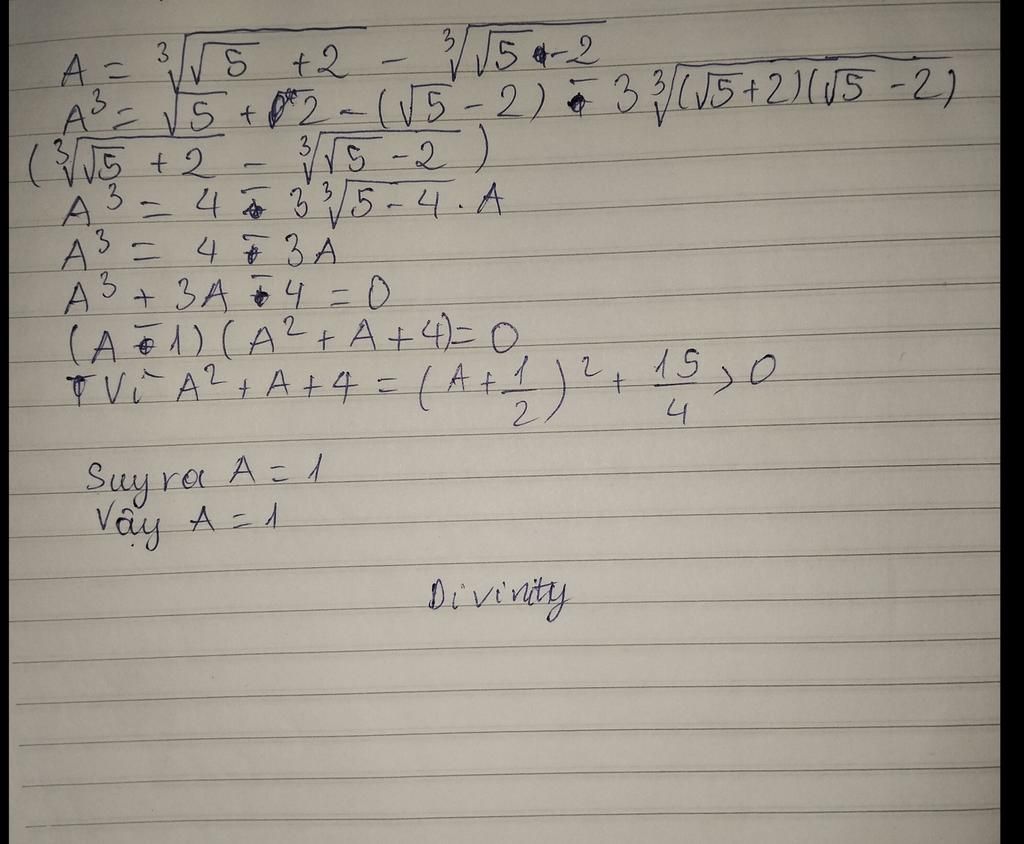 A = ∛(√5 + 2) - ∛(√5 - 2)
A³ = √5 + 2 - (√5 - 2) - 3∛((√5 + 2)(√5 - 2))
(∛(√5 + 2) - ∛(√5 - 2))
A³ = 4 - 3∛(5 - 4) . A
A³ = 4 - 3A
A³ + 3A - 4 = 0
(A - 1)(A² + A + 4) = 0
Vì A² + A + 4 = (A + 1/2)² + 15/4 > 0
Suy ra A = 1
Vậy A = 1
Divinity